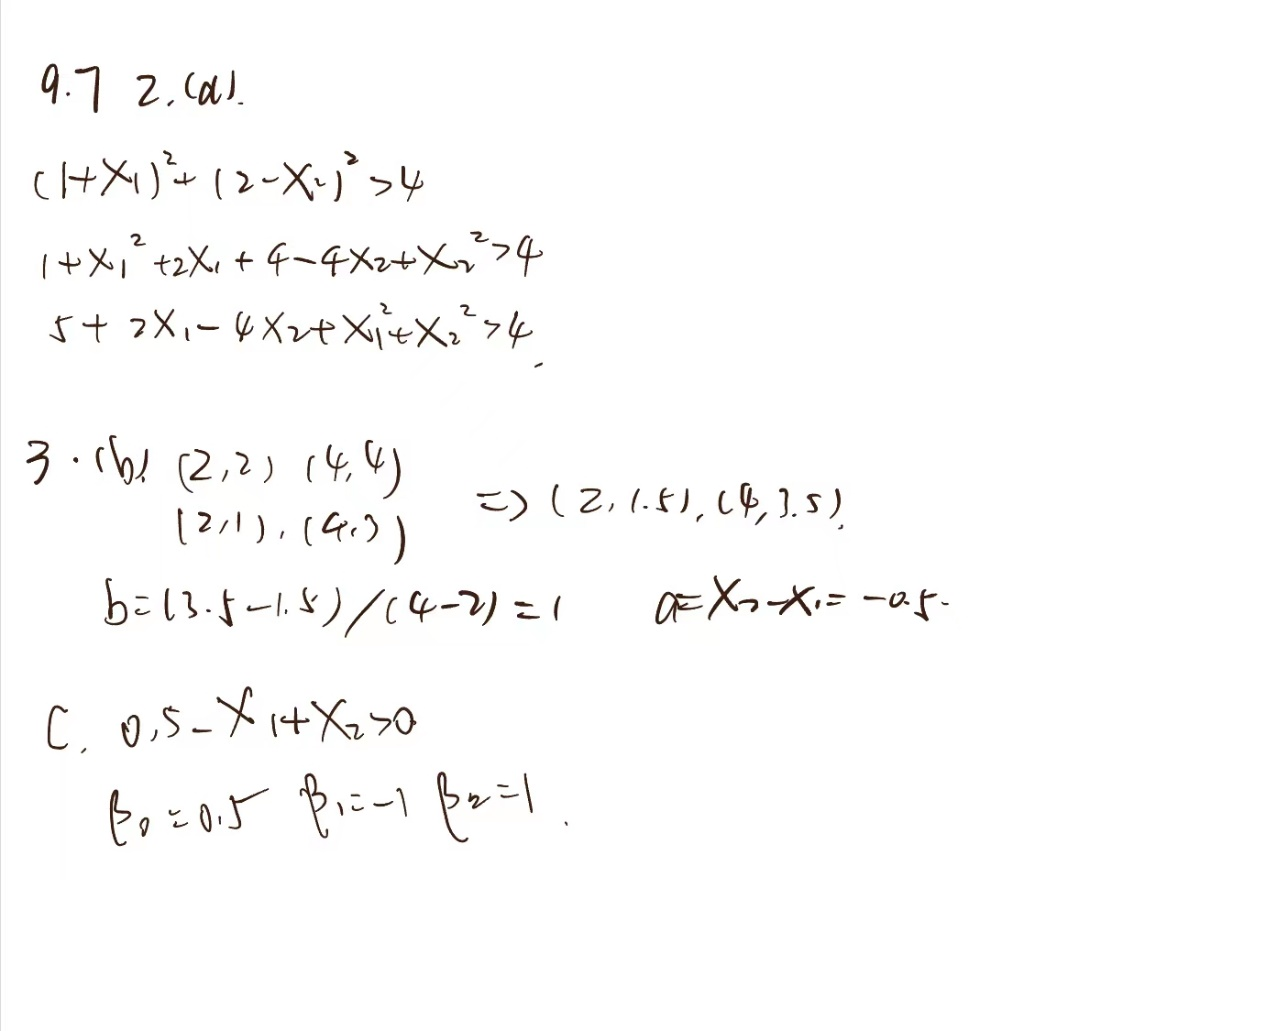 9.7 2.(d).
(1+X₁)²+(2-X₂)²>4
1+X₁²+2X₁+4-4X₂+X₂²>4
5+2X₁-4X₂+X₁²+X₂²>4.
3.(b) (2,2) (4,4)
(2,1),(4,3) => (2,1.5),(4,3.5).
b=(3.5-1.5)/(4-2)=1 a=X₂-X₁=-0.5.
C. 0.5-X₁+X₂>0
β₀=0.5 β₁=-1 β₂=1.